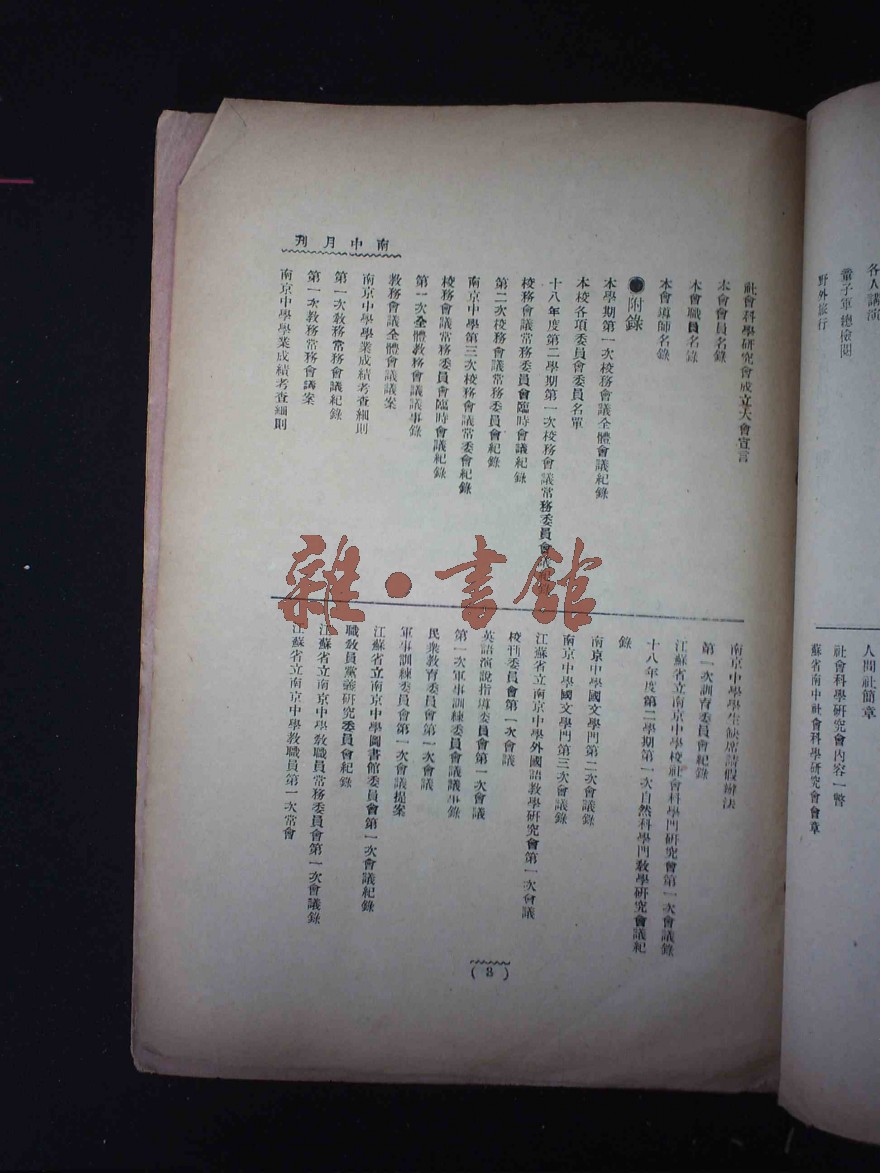 各人講演
童子軍總檢閱
野外旅行
人間社簡章
社會科學研究會內容一瞥
蘇省南中社會科學研究會會章
南中月刊
社會科學研究會成立大會宣言
本會會員名錄
本會職員名錄
本會導師名錄
●附錄
本學期第一次校務會議全體會議紀錄
本校各項委員會委員名單
十八年度第二學期第一次校務會議常務委員會議
校務會議常務委員會臨時會議紀錄
第二次校務會議常務委員會紀錄
南京中學第三次校務會議常委會紀錄
校務會議常務委員會臨時會議紀錄
第一次全體教務會議議事錄
教務會議全體會議議案
南京中學學業成績考查細則
第一次教務常務會議紀錄
第一次教務常務會議案
南京中學學業成績考查細則
南京中學學生缺席請假辦法
第一次訓育委員會紀錄
江蘇省立南京中學校社會科學門研究會第一次會議錄
十八年度第二學期第一次自然科學門教學研究會議紀
錄
南京中學國文學門第二次會議錄
南京中學國文學門第三次會議錄
江蘇省立南京中學外國語教學研究會第一次會議
校刊委員會第一次會議
英語演說指導委員會第一次會議
第一次軍事訓練委員會議議事錄
民衆教育委員會第一次會議
軍事訓練委員會第一次會議提案
江蘇省立南京中學圖書館委員會第一次會議紀錄
職教員黨義研究委員會紀錄
江蘇省立南京中學教職員常務委員會第一次會議錄
江蘇省立南京中學教職員第一次常會
(3)
雜·書館